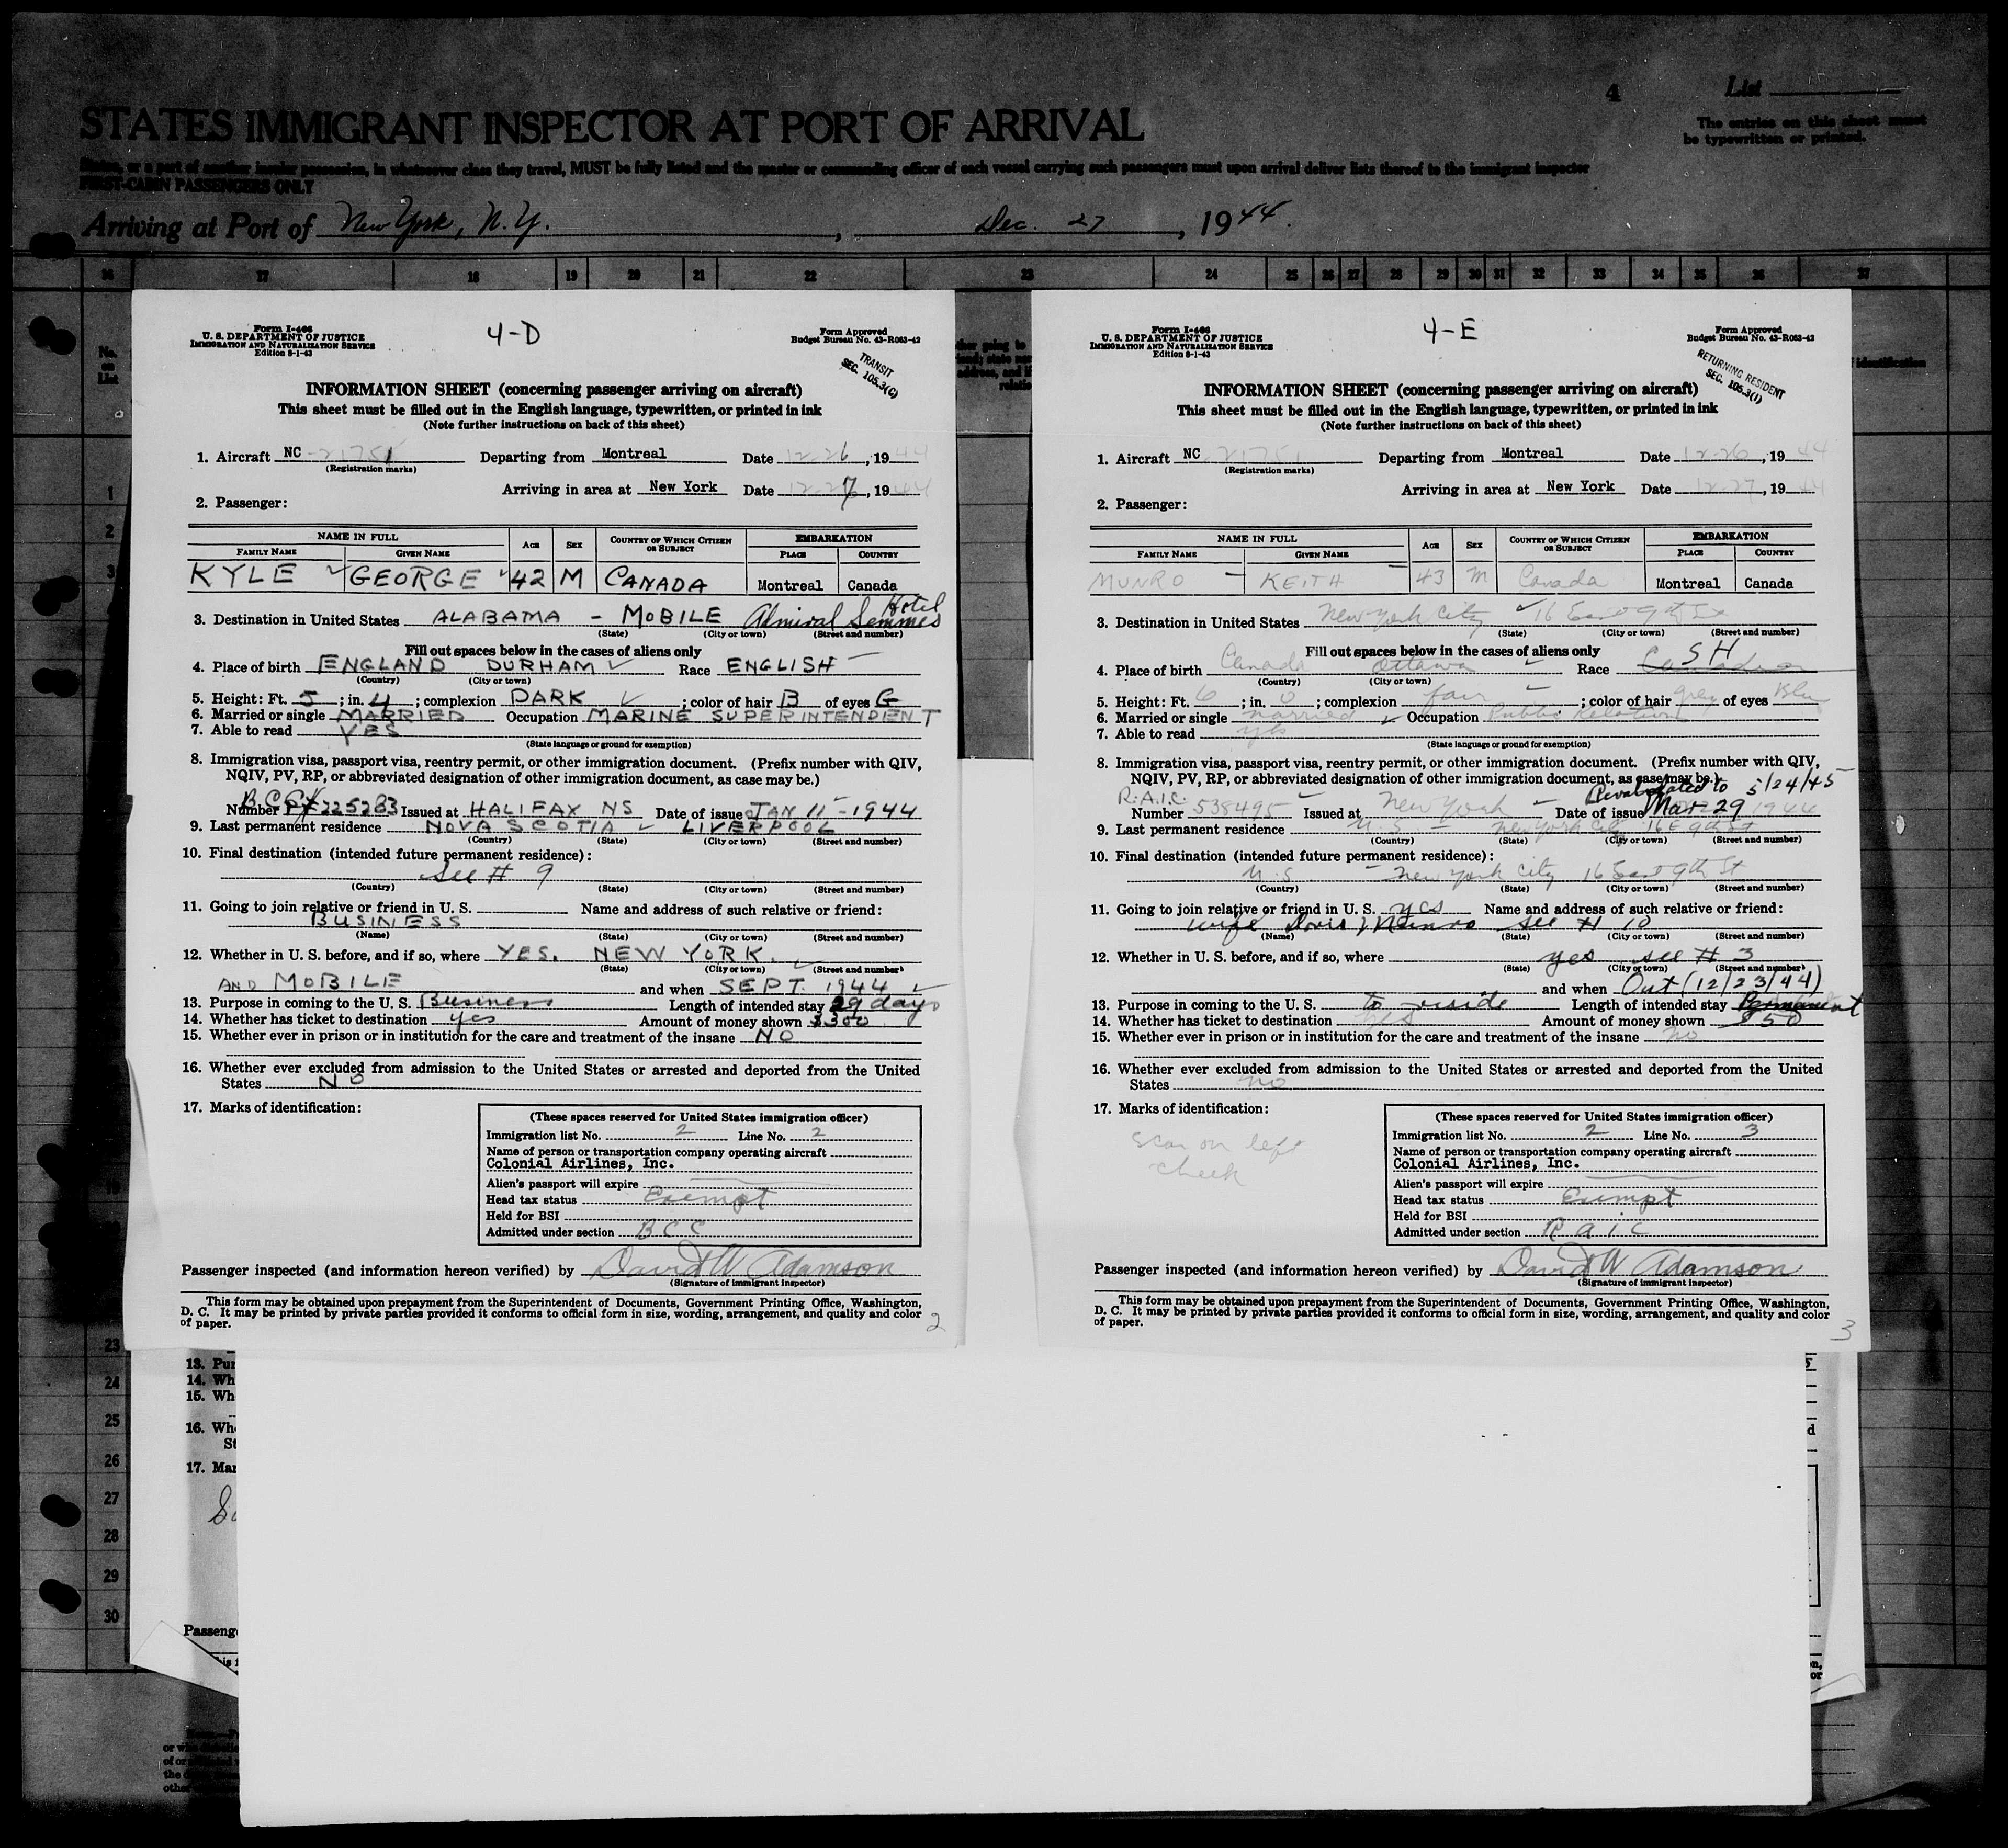 4
List
STATES IMMIGRANT INSPECTOR AT PORT OF ARRIVAL
The entries on this sheet must
be typewritten or printed.
States, or a port of another insular possession, in whatsoever class they travel, MUST be fully listed and the master or commanding officer of each vessel carrying such passengers must upon arrival deliver lists thereof to the immigrant inspector
FIRST-CABIN PASSENGERS ONLY
Arriving at Port of New York, N.Y. , Dec. 27 , 1944.
16 17 18 19 20 21 22 23 24 25 26 27 28 29 30 31 32 33 34 35 36 37
No.
on
List
Form I-466
U. S. DEPARTMENT OF JUSTICE
IMMIGRATION AND NATURALIZATION SERVICE
Edition 8-1-43
4-D
Form Approved
Budget Bureau No. 43-R063-42
TRANSIT
SEC. 105.3(C)
INFORMATION SHEET (concerning passenger arriving on aircraft)
This sheet must be filled out in the English language, typewritten, or printed in ink
(Note further instructions on back of this sheet)
1. Aircraft NC-21751 Departing from Montreal Date 12-26, 1944
(Registration marks)
Arriving in area at New York Date 12-27, 1944
2. Passenger:
NAME IN FULL AGE SEX COUNTRY OF WHICH CITIZEN OR SUBJECT EMBARKATION
FAMILY NAME GIVEN NAME PLACE COUNTRY
KYLE GEORGE 42 M CANADA Montreal Canada
3. Destination in United States ALABAMA - MOBILE Admiral Semmes Hotel
(State) (City or town) (Street and number)
Fill out spaces below in the cases of aliens only
4. Place of birth ENGLAND DURHAM Race ENGLISH
(Country) (City or town)
5. Height: Ft. 5 ; in. 4 ; complexion DARK ; color of hair B of eyes G
6. Married or single MARRIED Occupation MARINE SUPERINTENDENT
7. Able to read YES
(State language or ground for exemption)
8. Immigration visa, passport visa, reentry permit, or other immigration document. (Prefix number with QIV,
NQIV, PV, RP, or abbreviated designation of other immigration document, as case may be.)
Number 225283 Issued at HALIFAX NS Date of issue JAN 11-1944
9. Last permanent residence NOVA SCOTIA LIVERPOOL
(Country) (State) (City or town) (Street and number)
10. Final destination (intended future permanent residence):
See # 9
(Country) (State) (City or town) (Street and number)
11. Going to join relative or friend in U. S. Name and address of such relative or friend:
BUSINESS
(Name) (State) (City or town) (Street and number)
12. Whether in U. S. before, and if so, where YES. NEW YORK.
(State) (City or town) (Street and number)
AND MOBILE and when SEPT. 1944
13. Purpose in coming to the U. S. Business Length of intended stay 29 days
14. Whether has ticket to destination yes Amount of money shown $300
15. Whether ever in prison or in institution for the care and treatment of the insane NO
16. Whether ever excluded from admission to the United States or arrested and deported from the United
States NO
17. Marks of identification:
(These spaces reserved for United States immigration officer)
Immigration list No. 2 Line No. 2
Name of person or transportation company operating aircraft
Colonial Airlines, Inc.
Alien's passport will expire
Head tax status Exempt
Held for BSI
Admitted under section BCC
Passenger inspected (and information hereon verified) by David W Adamson
(Signature of immigrant inspector)
This form may be obtained upon prepayment from the Superintendent of Documents, Government Printing Office, Washington,
D. C. It may be printed by private parties provided it conforms to official form in size, wording, arrangement, and quality and color
of paper.
2
Form I-466
U. S. DEPARTMENT OF JUSTICE
IMMIGRATION AND NATURALIZATION SERVICE
Edition 8-1-43
4-E
Form Approved
Budget Bureau No. 43-R063-42
RETURNING RESIDENT
SEC. 105.3(I)
INFORMATION SHEET (concerning passenger arriving on aircraft)
This sheet must be filled out in the English language, typewritten, or printed in ink
(Note further instructions on back of this sheet)
1. Aircraft NC 21751 Departing from Montreal Date 12-26, 1944
(Registration marks)
Arriving in area at New York Date 12-27, 1944
2. Passenger:
NAME IN FULL AGE SEX COUNTRY OF WHICH CITIZEN OR SUBJECT EMBARKATION
FAMILY NAME GIVEN NAME PLACE COUNTRY
MUNRO KEITH 43 M Canada Montreal Canada
3. Destination in United States New York City 16 East 9th St
(State) (City or town) (Street and number)
Fill out spaces below in the cases of aliens only
4. Place of birth Canada Ottawa Race Canadian SH
(Country) (City or town)
5. Height: Ft. 6 ; in. 0 ; complexion fair ; color of hair grey of eyes Blue
6. Married or single married Occupation Public Relations
7. Able to read yes
(State language or ground for exemption)
8. Immigration visa, passport visa, reentry permit, or other immigration document. (Prefix number with QIV,
NQIV, PV, RP, or abbreviated designation of other immigration document, as case may be.)
Revalidated to 5/24/45
R.A.I.C.
Number 538495 Issued at New York Date of issue Mar 29 1944
9. Last permanent residence U.S. - New York City 16 E 9th St
(Country) (State) (City or town) (Street and number)
10. Final destination (intended future permanent residence):
U.S. - New York City 16 East 9th St
(Country) (State) (City or town) (Street and number)
11. Going to join relative or friend in U. S. yes Name and address of such relative or friend:
wife Munro see # 10
(Name) (State) (City or town) (Street and number)
12. Whether in U. S. before, and if so, where yes see # 3
(State) (City or town) (Street and number)
and when Out (12/23/44)
13. Purpose in coming to the U. S. to reside Length of intended stay Permanent
14. Whether has ticket to destination yes Amount of money shown $50
15. Whether ever in prison or in institution for the care and treatment of the insane no
16. Whether ever excluded from admission to the United States or arrested and deported from the United
States no
17. Marks of identification:
scar on left
cheek
(These spaces reserved for United States immigration officer)
Immigration list No. 2 Line No. 3
Name of person or transportation company operating aircraft
Colonial Airlines, Inc.
Alien's passport will expire
Head tax status Exempt
Held for BSI
Admitted under section RAIC
Passenger inspected (and information hereon verified) by David W Adamson
(Signature of immigrant inspector)
This form may be obtained upon prepayment from the Superintendent of Documents, Government Printing Office, Washington,
D. C. It may be printed by private parties provided it conforms to official form in size, wording, arrangement, and quality and color
of paper.
3
1
2
3
23
24
25
26
27
28
29
30
13. Pur
14. Wh
15. Wh
16. Whe
St
17. Mar
Passenge